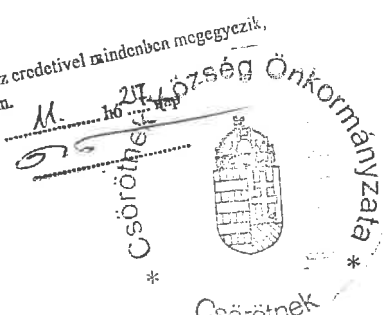 z eredetivel mindenben megegyezik,
11. hó 27 nap
Csörötnek Község Önkormányzata *
Csörötnek
*